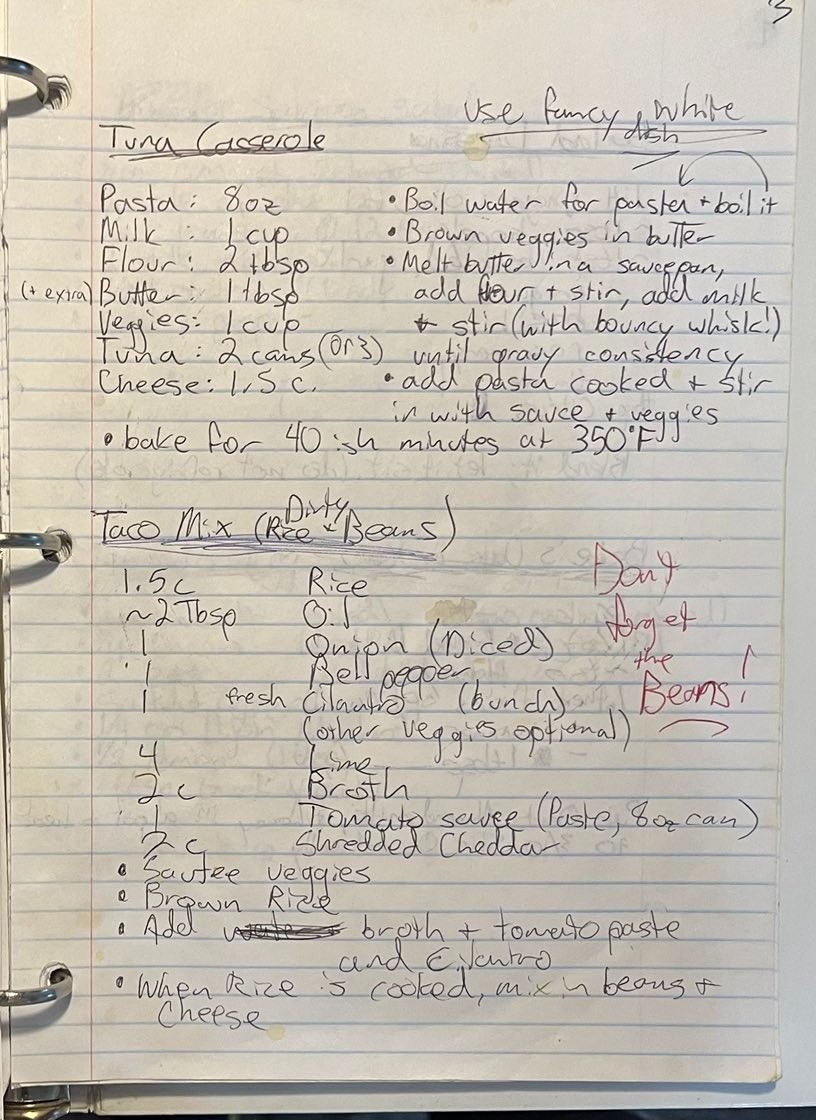 3
use fancy white
dish
Tuna Casserole
Pasta: 8oz
Milk : 1 cup
Flour: 2 tbsp
(+ extra) Butter: 1 tbsp
Veggies: 1 cup
Tuna: 2 cans (or 3)
Cheese: 1.5 c.
• Boil water for pasta + boil it
• Brown veggies in butter
• Melt butter in a saucepan,
add flour + stir, add milk
+ stir (with bouncy whisk!)
until gravy consistency
• add pasta cooked + stir
in with sauce + veggies
• bake for 40 ish minutes at 350°F
Taco Mix (Dirty Rice + Beans)
1.5 c Rice
~2 Tbsp Oil
1 Onion (Diced)
1 Bell pepper
1 fresh Cilantro (bunch)
(other veggies optional)
4 Lime
2 c Broth
1 Tomato sauce (Paste, 8oz can)
2 c Shredded Cheddar
Don't
forget
the
Beans!
• Sautee veggies
• Brown Rice
• Add broth + tomato paste
and Cilantro
• When Rice is cooked, mix in beans +
Cheese